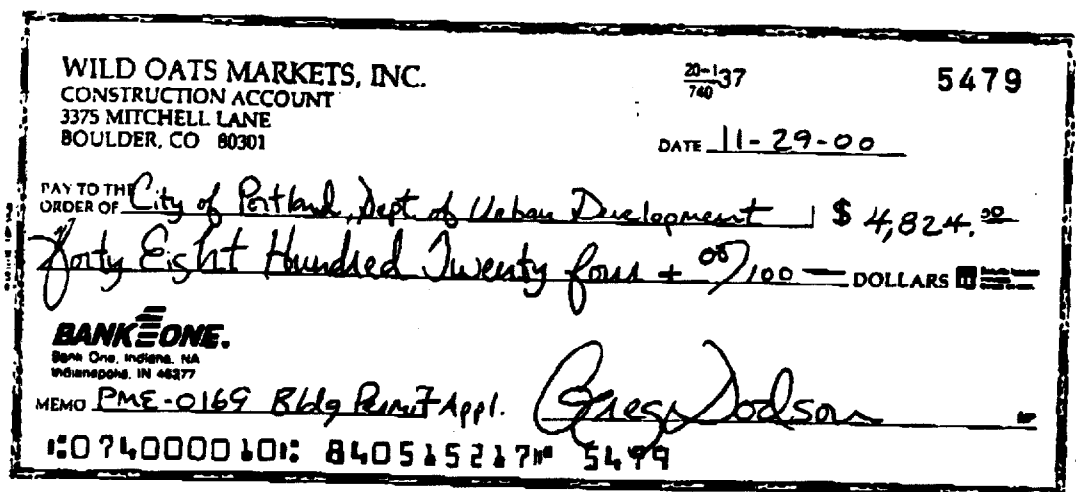 WILD OATS MARKETS, INC.
CONSTRUCTION ACCOUNT
3375 MITCHELL LANE
BOULDER, CO 80301
20-1/740 37
5479
DATE 11-29-00
PAY TO THE ORDER OF City of Portland, Dept. of Urban Development $ 4,824.00
Forty Eight Hundred Twenty four + 00/100 DOLLARS
BANK ONE.
Bank One, Indiana, NA
Indianapolis, IN 46277
MEMO PME-0169 Bldg Permit Appl. Greg Dodson
⑆074000010⑆ 840515217⑈ 5479